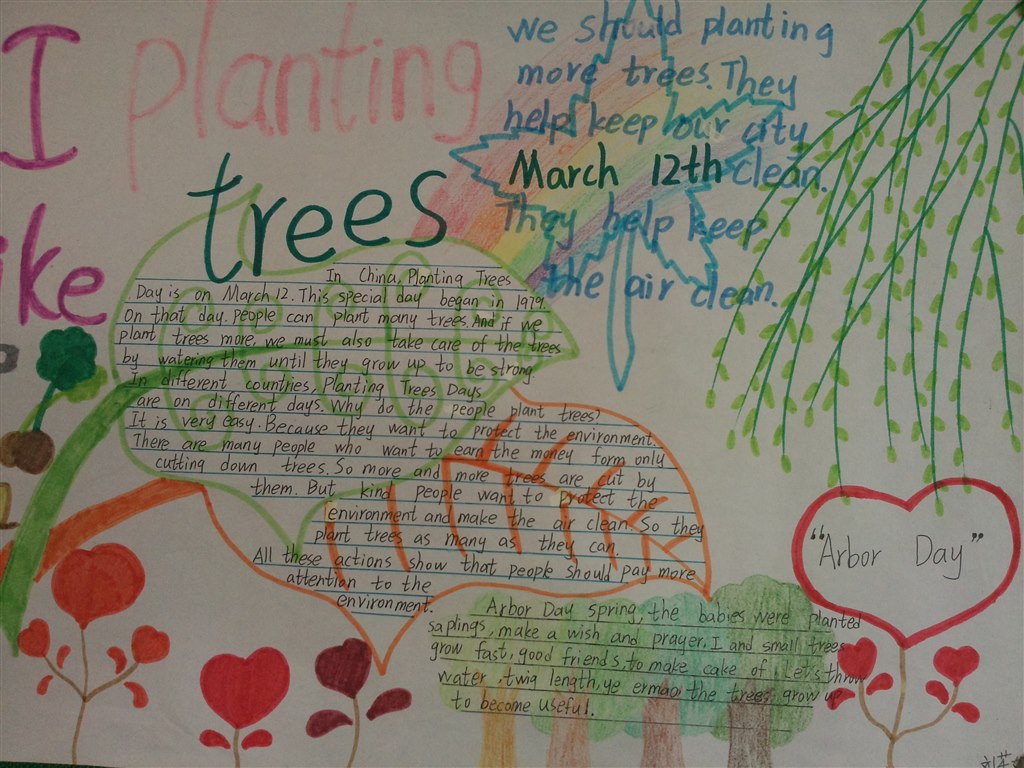 I
like
planting
trees
we should planting
more trees. They
help keep our city
clean.
March 12th
They help keep
the air clean.
In China, Planting Trees
Day is on March 12. This special day began in 1979.
On that day. people can plant many trees. And if we
plant trees more, we must also take care of the trees
by watering them until they grow up to be strong.
In different countries, Planting Trees Days
are on different days. Why do the people plant trees?
It is very easy. Because they want to protect the environment.
There are many people who want to earn the money form only
cutting down trees. So more and more trees are cut by
them. But kind people want to protect the
environment and make the air clean. So they
plant trees as many as they can.
All these actions show that people should pay more
attention to the
environment.
"Arbor Day"
Arbor Day spring, the babies were planted
saplings, make a wish and prayer, I and small trees
grow fast, good friends, to make cake of! Let's throw
water, twig length, ye ermao the trees grow up
to become useful.